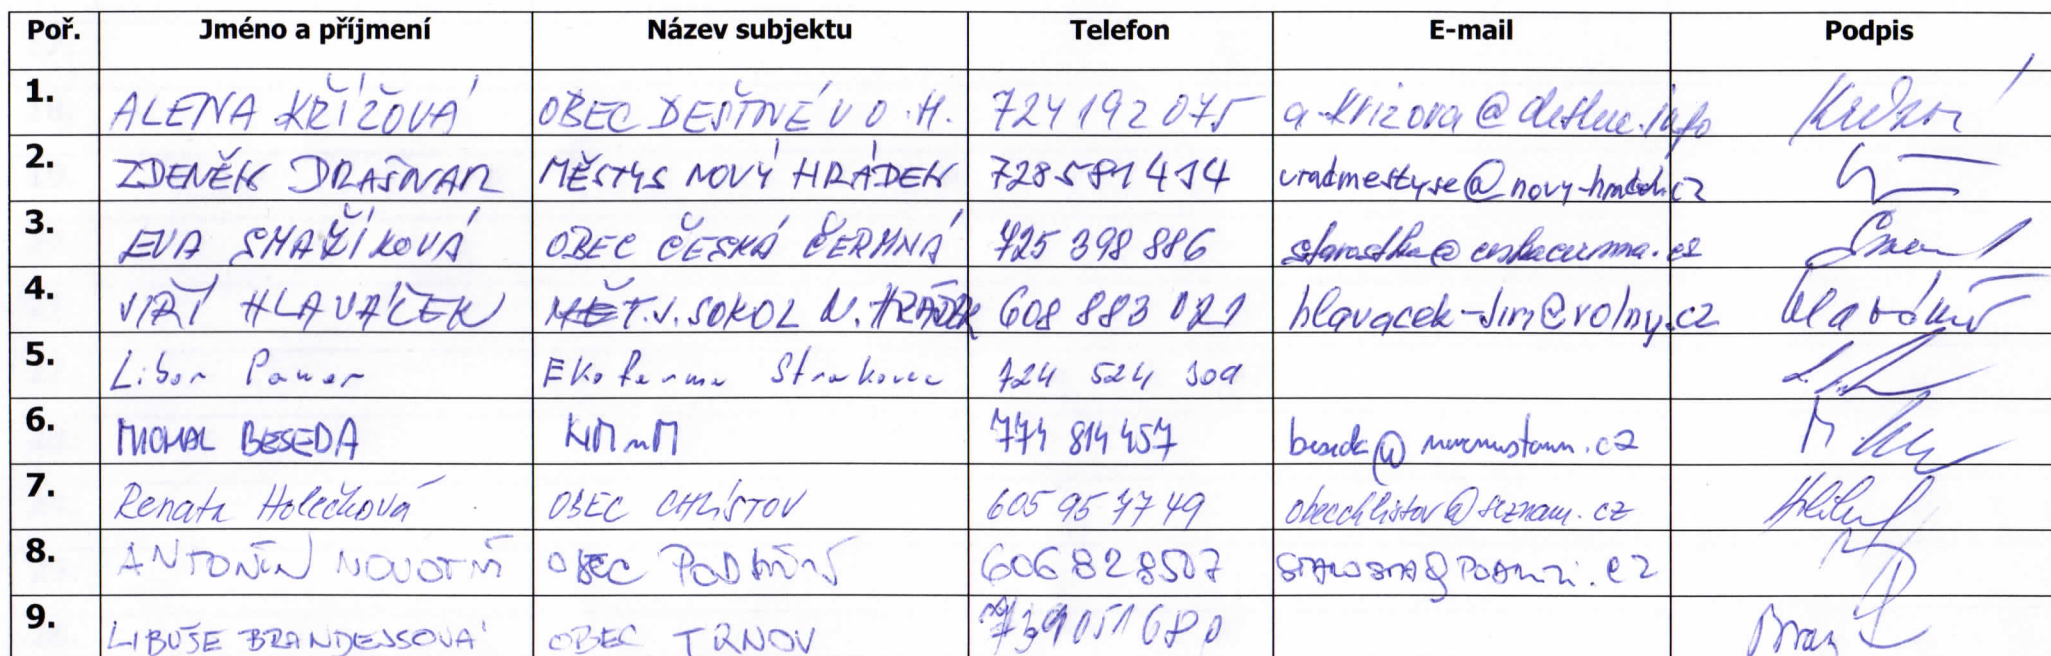 Poř. Jméno a příjmení Název subjektu Telefon E-mail Podpis
1. ALENA KŘÍŽOVÁ OBEC DEŠTNÉ V O.H. 724 192 075 a.krizova@destne.info
2. ZDENĚK DRAŠNAR MĚSTYS NOVÝ HRÁDEK 728 581 414 uradmestyse@novy-hradek.cz
3. EVA SMAŽÍKOVÁ OBEC ČESKÁ ČERMNÁ 725 398 886 starostka@ceskacermna.cz
4. JIŘÍ HLAVÁČEK T.J. SOKOL N. HRÁDEK 608 883 021 hlavacek-jiri@volny.cz
5. Libor 724 524
6. MICHAL BESEDA 774 814 457
7. Renata Holečková OBEC CHLÍSTOV 605 95 77 49 obecchlistov@seznam.cz
8. ANTONÍN NOVOTNÝ OBEC 606 828 507
9. LIBUŠE BRANDEJSOVÁ OBEC TRNOV 739 051 680